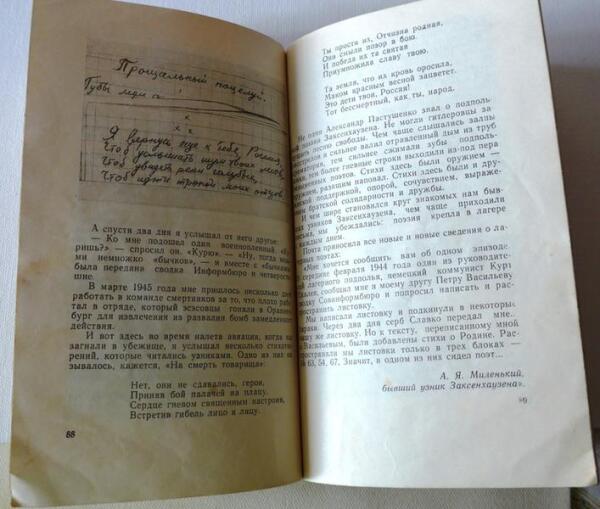 Прощальный поцелуй.
Губы
Я вернусь еще к тебе, Россия,
Чтоб услышать шум твоих лесов,
Чтоб увидеть реки голубые,
Чтоб идти тропой моих отцов.
А спустя два дня я услышал от него другое:
— Ко мне подошел один военнопленный. «Ку-
ришь?» — спросил он. «Курю». — «Ну, тогда возь-
ми немножко «бычков», — и вместе с «бычками»
была передана сводка Информбюро и четверости-
шие.
В марте 1945 года мне пришлось несколько дней
работать в команде смертников за то, что плохо рабо-
тал в отряде, который эсэсовцы гоняли в Ораниен-
бург для извлечения из развалин бомб замедленного
действия.
И вот здесь во время налета авиации, когда нас
загнали в убежище, я услышал несколько стихотво-
рений, которые читались узниками. Одно из них на-
зывалось, кажется, «На смерть товарища»:
Нет, они не сдавались, герои,
Приняв бой палачей на плацу,
Сердце гневом священным настроив,
Встретив гибель лицо к лицу.
88
Ты прости их, Отчизна родная,
Они смыли позор в бою.
И победа их та святая
Приумножила славу твою.
Та земля, что их кровь оросила,
Маком красным весной зацветет.
Это дети твои, Россия!
Тот бессмертный, как ты, народ.
Не один Александр Пастушенко знал о подполь-
ной поэзии Заксенхаузена. Не могли гитлеровцы за-
песню свободы. Чем чаще слышались залпы
и сильнее валил отравленный дым из труб
тем сильнее сжимали зубы подполь-
тем более гневные строки выходили из-под пера
поэтов. Стихи здесь были оружием —
разящим наповал. Стихи здесь были и дру-
поддержкой, опорой, сочувствием, выраже-
братской солидарности и дружбы.
И чем шире становился круг знакомых нам быв-
узников Заксенхаузена, чем чаще приходили
мы убеждались: поэзия крепла в лагере
каждым днем.
Почта приносила все новые и новые сведения о ла-
«Мне хочется сообщить вам об одном эпизоде.
середине февраля 1944 года один из руководите-
лагерного подполья, немецкий коммунист Курт
сообщил мне и моему другу Петру Васильеву
сводку Совинформбюро и попросил написать и рас-
листовку.
Мы написали листовку и подкинули в некоторые
бараки. Через два дня серб Славко передал мне
нашу же листовку. Но к тексту, переписанному мной
Васильевым, были добавлены стихи о Родине. Рас-
мы листовки только в трех блоках —
63, 54, 67. Значит, в одном из них сидел поэт...
А. Я. Миленький,
бывший узник Заксенхаузена».